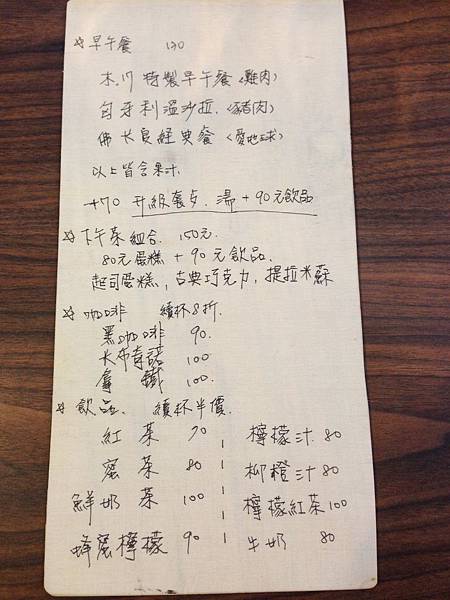 ☆早午餐 130
木.17 特製早午餐〈雞肉〉
匈牙利溫沙拉.〈豬肉〉
佛卡良經典餐〈愛地球〉
以上皆含果汁.
+70 升級套夕. 湯 + 90元飲品
☆下午茶組合. 150元.
80元蛋糕 + 90元飲品.
起司蛋糕, 古典巧克力, 提拉米蘇
☆咖啡 續杯8折.
黑咖啡 90.
卡布奇諾 100
拿鐵 100.
☆飲品. 續杯半價.
紅茶 70 檸檬汁. 80
蜜茶 80 柳橙汁 80
鮮奶茶 100 檸檬紅茶 100
蜂蜜檸檬 90 牛奶 80